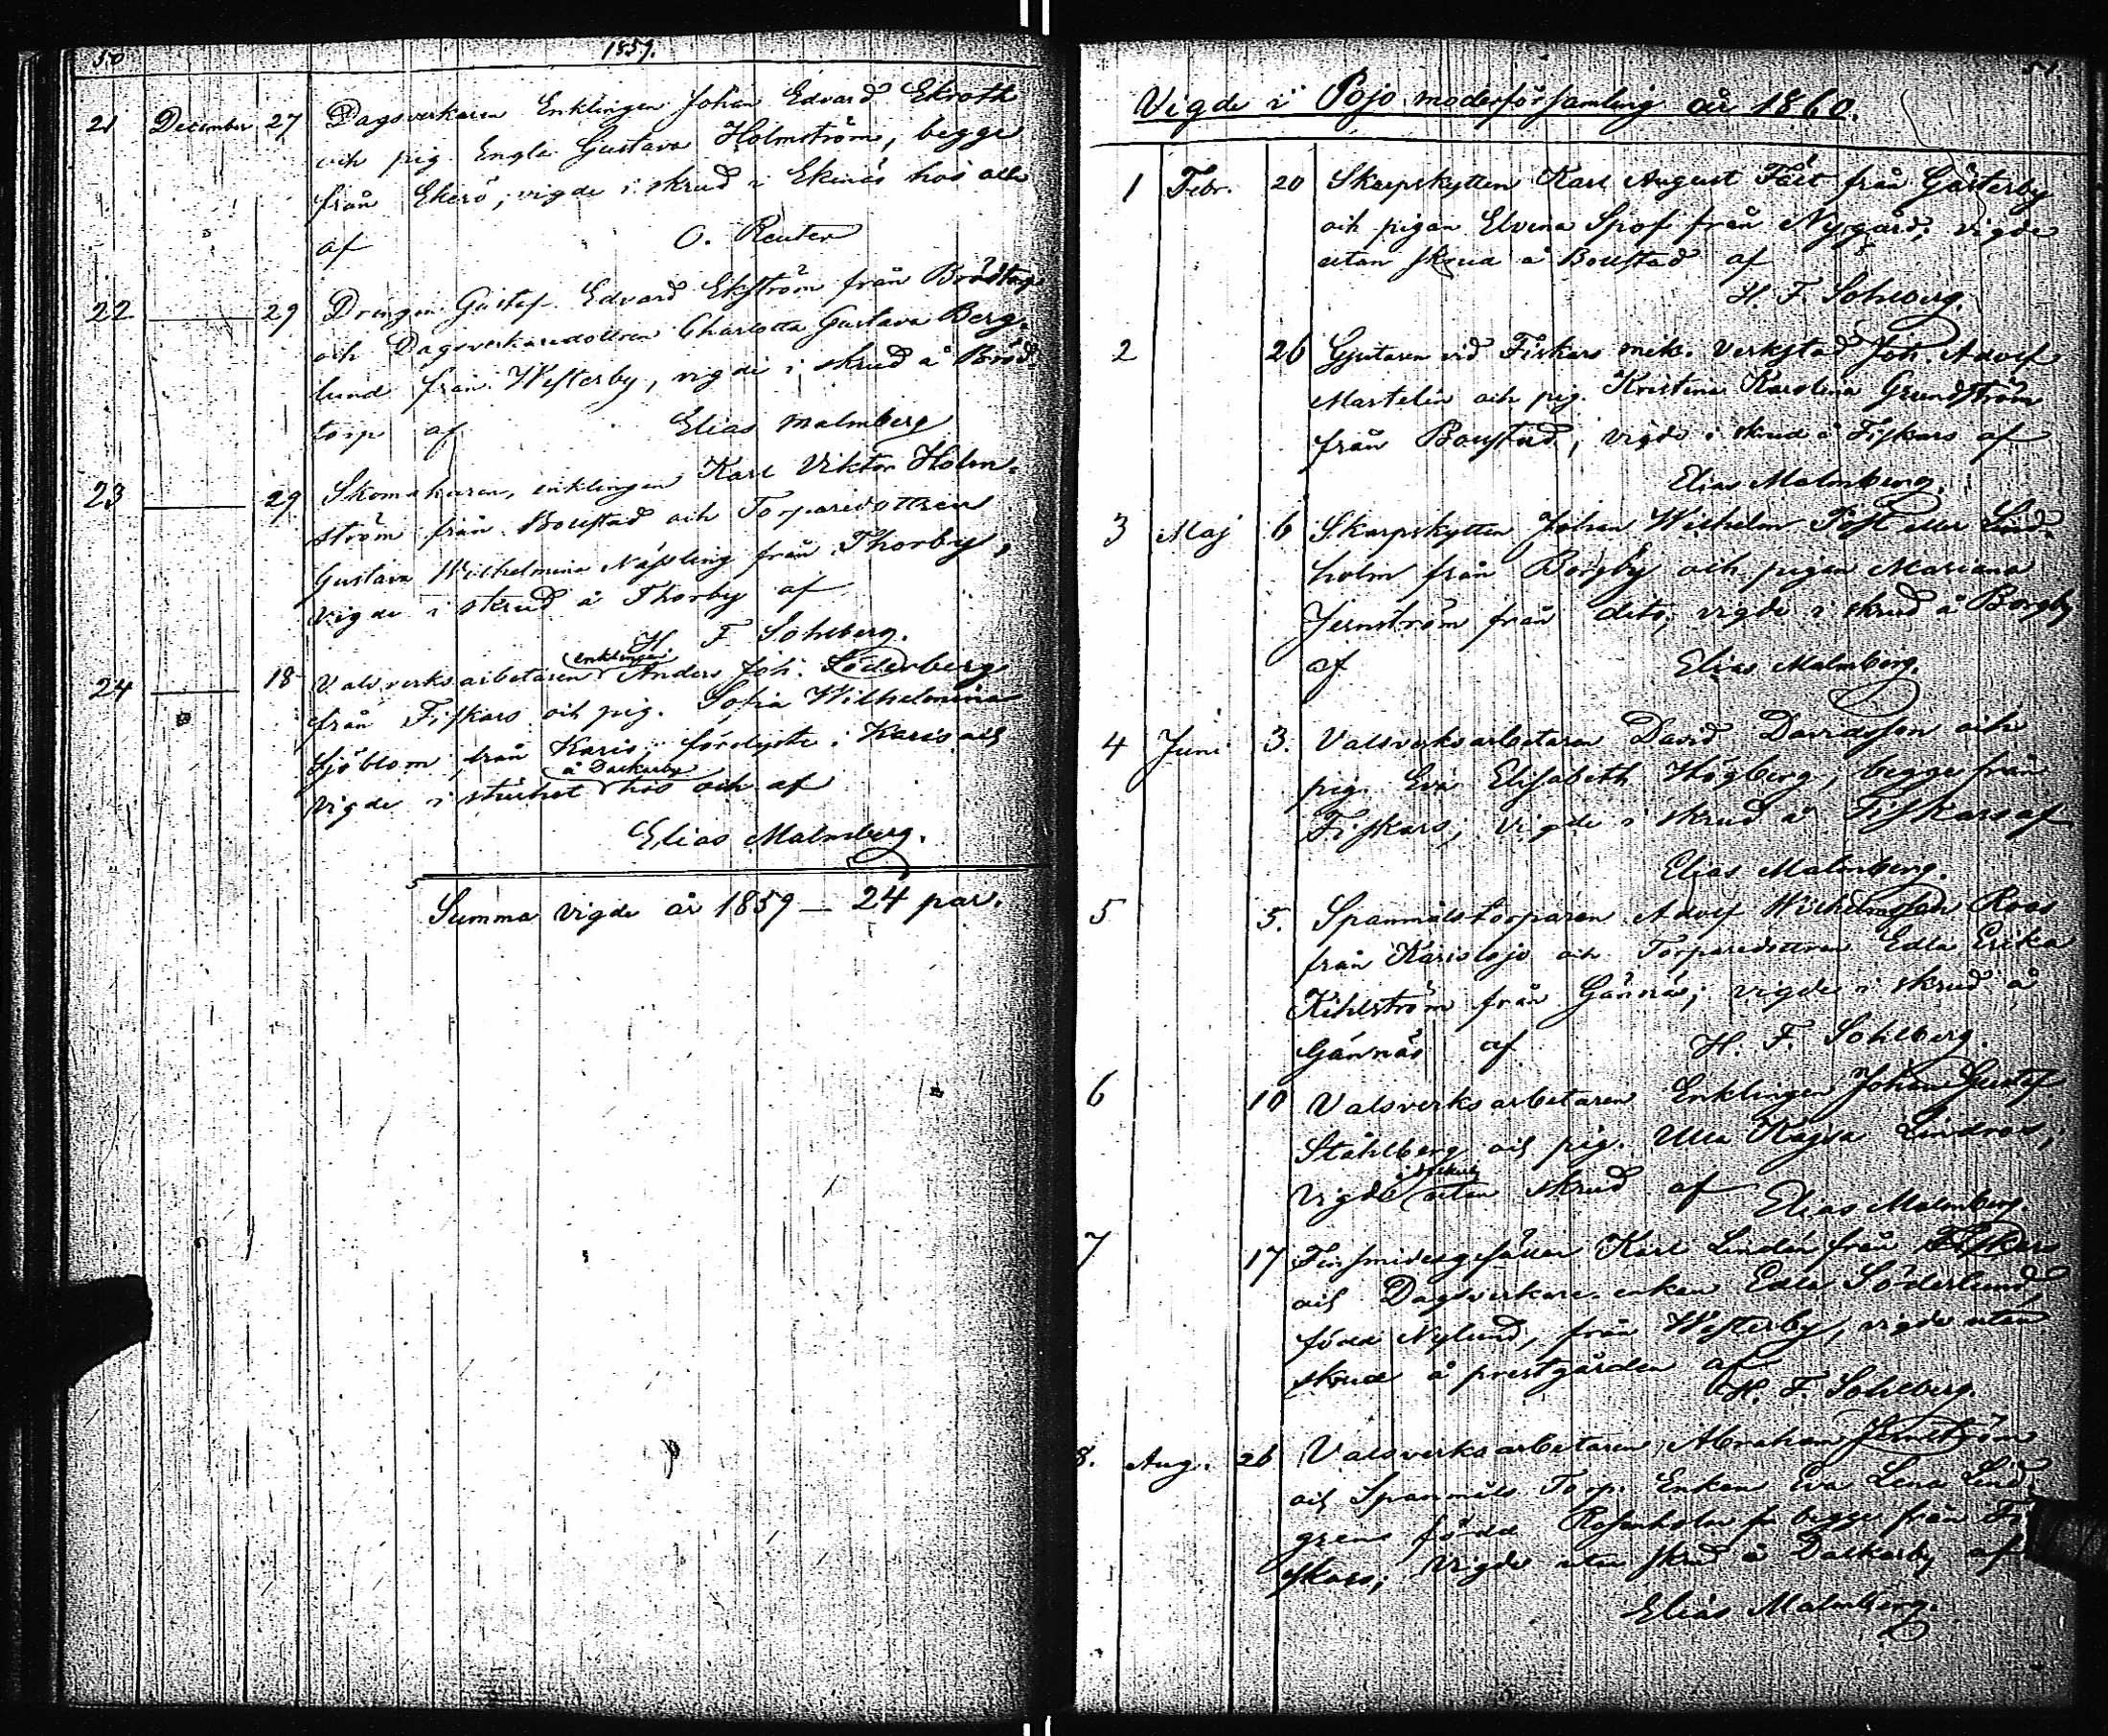 50
1859.
21 December 27 Dagsverkaren Enklingen Johan Edvard Ekroth
och pig. Engla Gustava Holmström, begge
från Ekerö; vigde i skrud i Ekenäs hos och
af O. Reuter
22 29 Drengen Gustaf Edvard Ekström från Brödtorp
och Dagsverkaredottren Charlotta Gustava Berg-
lund från Westerby, vigde i skrud å Bröd-
torp af Elias Malmberg
23 29 Skomakaren, enklingen Karl Viktor Holm-
ström från Boustad och Torparedottren
Gustava Wilhelmina Nässling från Thorby,
vigde i skrud å Thorby af
H F Sohlberg.
24 18 Valsverksarbetaren enklingen Anders Joh. Söderberg
från Fiskars och pig. Sofia Wilhelmina
Sjöblom från Karis; förlyste i Karis och
vigde i stillhet å Dalkarby hos och af
Elias Malmberg.
Summa vigde år 1859 — 24 par.
51.
Vigde i Pojo moderförsamling år 1860.
1 Febr. 20 Skarpskytten Karl August från Gästerby
och pigan Elvina Spof från Nygård; vigde
utan skrud å Boustad af
H. F. Sohlberg.
2 26 Gjutaren vid Fiskars mek. verkstad Joh. Adolf
Martelin och pig. Kristina Karolina Grundström
från Boustad; vigde i skrud å Fiskars af
Elias Malmberg.
3 Maj 6 Skarpskytten Johan Wilhelm Post eller Lind-
holm från Borgby och pigan Mariana
Jernström från dito; vigde i skrud å Borgby
af Elias Malmberg.
4 Juni 3. Valsverksarbetaren David Davidsson och
pig. Eva Elisabeth Högberg, begge från
Fiskars; vigde i skrud å Fiskars af
Elias Malmberg.
5 5. Spanmålstorparen Adolf Wilhelmsson Roos
från Karislojo och Torparedottren Edla Erika
Kihlström från Gännäs; vigde i skrud å
Gännäs af H. F. Sohlberg.
6 10 Valsverksarbetaren Enklingen Johan Gustaf
Ståhlberg och pig. Ulla Kajsa Lindroos;
vigde utan skrud af Elias Malmberg
7 17 Finsmidesgesällen Karl Lindén från Fiskars
och Dagsverkare-enkan Edla Söderlund,
född Nylund, från Westerby, vigde utan
skrud å prestgården af
H. F. Sohlberg.
8. Aug. 26 Valsverksarbetaren Abraham Jernström
och Spanmåls Torp. Enkan Eva Lena Lind-
gren född Rosenholm begge från Fi-
skars; vigde utan skrud å Dalkarby af
Elias Malmberg.